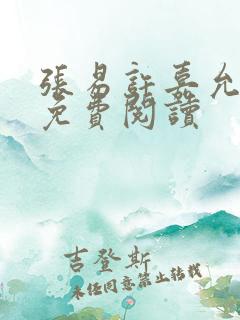 張易許嘉允
免費閱讀
吉登斯
未经同意禁止转载